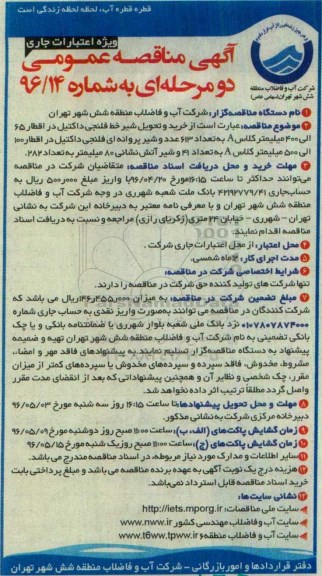 قطره قطره آب، لحظه لحظه زندگی است
ویژه اعتبارات جاری
آگهی مناقصه عمومی
دو مرحله‌ای به شماره ۹۶/۱۴
شرکت آب و فاضلاب منطقه
شش شهر تهران (سهامی خاص)
۱ نام دستگاه مناقصه‌گزار: شرکت آب و فاضلاب منطقه شش شهر تهران
۲ موضوع مناقصه: عبارت است از خرید و تحویل شیر خط فلنجی داکتیل در اقطار ۶۵
الی ۴۰۰ میلیمتر کلاس A به تعداد ۶۱۳ عدد و شیر پروانه ای فلنجی داکتیل در اقطار ۱۰۰
الی ۵۰۰ میلیمتر کلاس A به تعداد ۴۱ و شیر آتش نشانی ۸۰ میلیمتر به تعداد ۲۸۲.
۳ مهلت خرید و محل دریافت اسناد مناقصه: متقاضیان شرکت در مناقصه
می‌توانند حداکثر تا ساعت ۱۶:۱۵ مورخ ۹۶/۰۴/۲۰ با واریز مبلغ ۵۰۰/۰۰۰ ریال به
حساب‌جاری ۴۲۹۲۷۷۹/۴۱ بانک ملت شعبه شهرری در وجه شرکت آب و فاضلاب
منطقه شش شهر تهران و با معرفی نامه معتبر به دبیرخانه این شرکت به نشانی
تهران - شهرری - خیابان ۲۴ متری (زکریای رازی) مراجعه و نسبت به دریافت اسناد
مناقصه اقدام نمایند
۴ محل اعتبار: از محل اعتبارات جاری شرکت.
۵ مدت اجرای کار: ماه شمسی.
۶ شرایط اختصاصی شرکت در مناقصه:
تنها شرکت های تولید کننده حق شرکت در مناقصه را دارند.
۷ مبلغ تضمین شرکت در مناقصه: به میزان ریال می باشد که
شرکت کنندگان در مناقصه می توانند به‌صورت واریز نقدی به حساب جاری شماره
۰۱۰۷۸۰۷۸۷۴۰۰۰ نزد بانک ملی شعبه بلوار شهرری یا ضمانتنامه بانکی و یا چک
بانکی تضمینی به نام شرکت آب و فاضلاب منطقه شش شهر تهران تهیه و ضمیمه
پیشنهاد به دستگاه مناقصه‌گزار تسلیم نمایند به پیشنهادهای فاقد مهر و امضاء،
مشروط، مخدوش، فاقد سپرده و سپرده‌های مخدوش یا سپرده‌های کمتر از میزان
مقرر، چک شخصی و نظایر آن و همچنین پیشنهاداتی که بعد از انقضای مدت مقرر
واصل گردد مطلقاً ترتیب اثر داده نخواهد شد.
۸ مهلت و محل تحویل پیشنهادها: تا ساعت ۱۶:۱۵ روز سه شنبه مورخ ۹۶/۰۵/۰۳
دبیرخانه مرکزی شرکت به نشانی مذکور.
۹ زمان گشایش پاکت‌های (الف، ب): ساعت ۱۱:۰۰ صبح روز دوشنبه مورخ ۹۶/۰۵/۰۹
۱۰ زمان گشایش پاکت‌های (ج): ساعت ۱۱:۰۰ صبح روز یک شنبه مورخ ۹۶/۰۵/۱۵
۱۱ سایر اطلاعات و مدارک مورد نیاز مربوطه، در اسناد مناقصه مندرج می باشد.
۱۲ هزینه درج یک نوبت آگهی به عهده برنده مناقصه می باشد و مبلغ پرداختی بابت
خرید اسناد مناقصه قابل استرداد نمی‌باشد.
۱۳ نشانی سایت‌ها:
سایت ملی مناقصات: http://iets.mporg.ir
سایت آب و فاضلاب مهندسی کشور www.nww.ir
سایت آب و فاضلاب منطقه ۶ www.t6ww.tpww.ir
دفتر قراردادها و امور بازرگانی - شرکت آب و فاضلاب منطقه شش شهر تهران